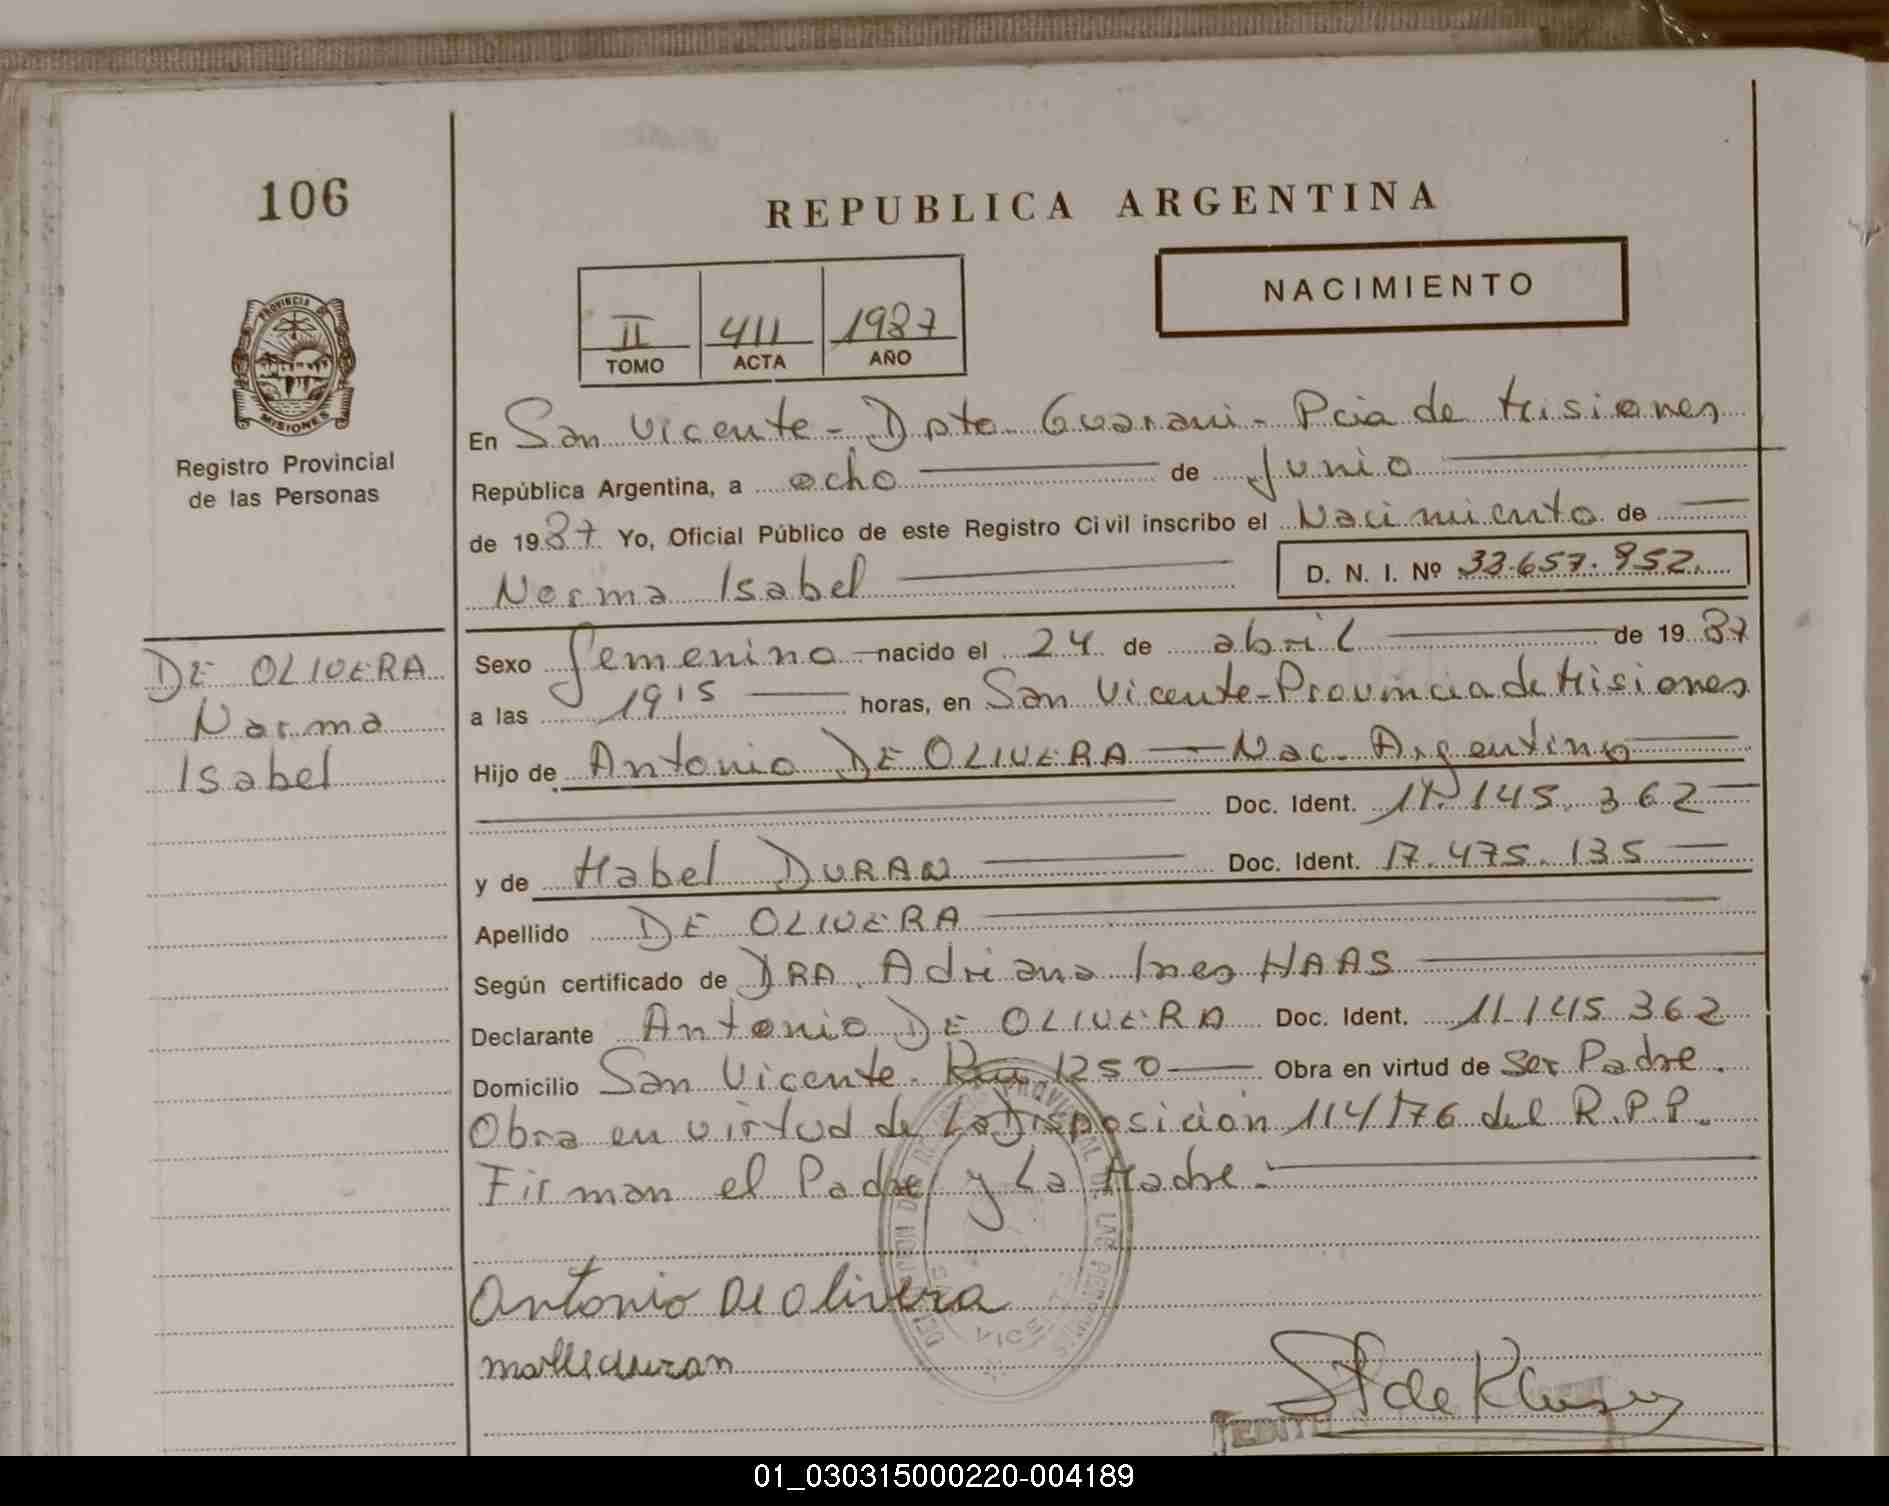 106
REPUBLICA ARGENTINA
NACIMIENTO
II 411 1987
TOMO ACTA AÑO
PROVINCIA DE
MISIONES
Registro Provincial
de las Personas
En San Vicente - Dpto Guarani - Pcia de Misiones
República Argentina, a ocho de Junio
de 1987 Yo, Oficial Público de este Registro Civil inscribo el Nacimiento de
Norma Isabel D. N. I. Nº 33.657.952
DE OLIVERA
Norma
Isabel
Sexo femenino nacido el 24 de abril de 1987
a las 1915 horas, en San Vicente - Provincia de Misiones
Hijo de Antonio DE OLIVERA - Nac. Argentino
Doc. Ident. 11.145.362
y de Mabel DURAN Doc. Ident. 17.475.135
Apellido DE OLIVERA
Según certificado de DRA. Adriana Ines HAAS
Declarante Antonio DE OLIVERA Doc. Ident. 11.145.362
Domicilio San Vicente. 1250 Obra en virtud de Ser Padre.
Obra en virtud de La Disposición 114/76 del R.P.P.
Firman el Padre y La Madre.
Antonio De Olivera
duran
01_030315000220-004189